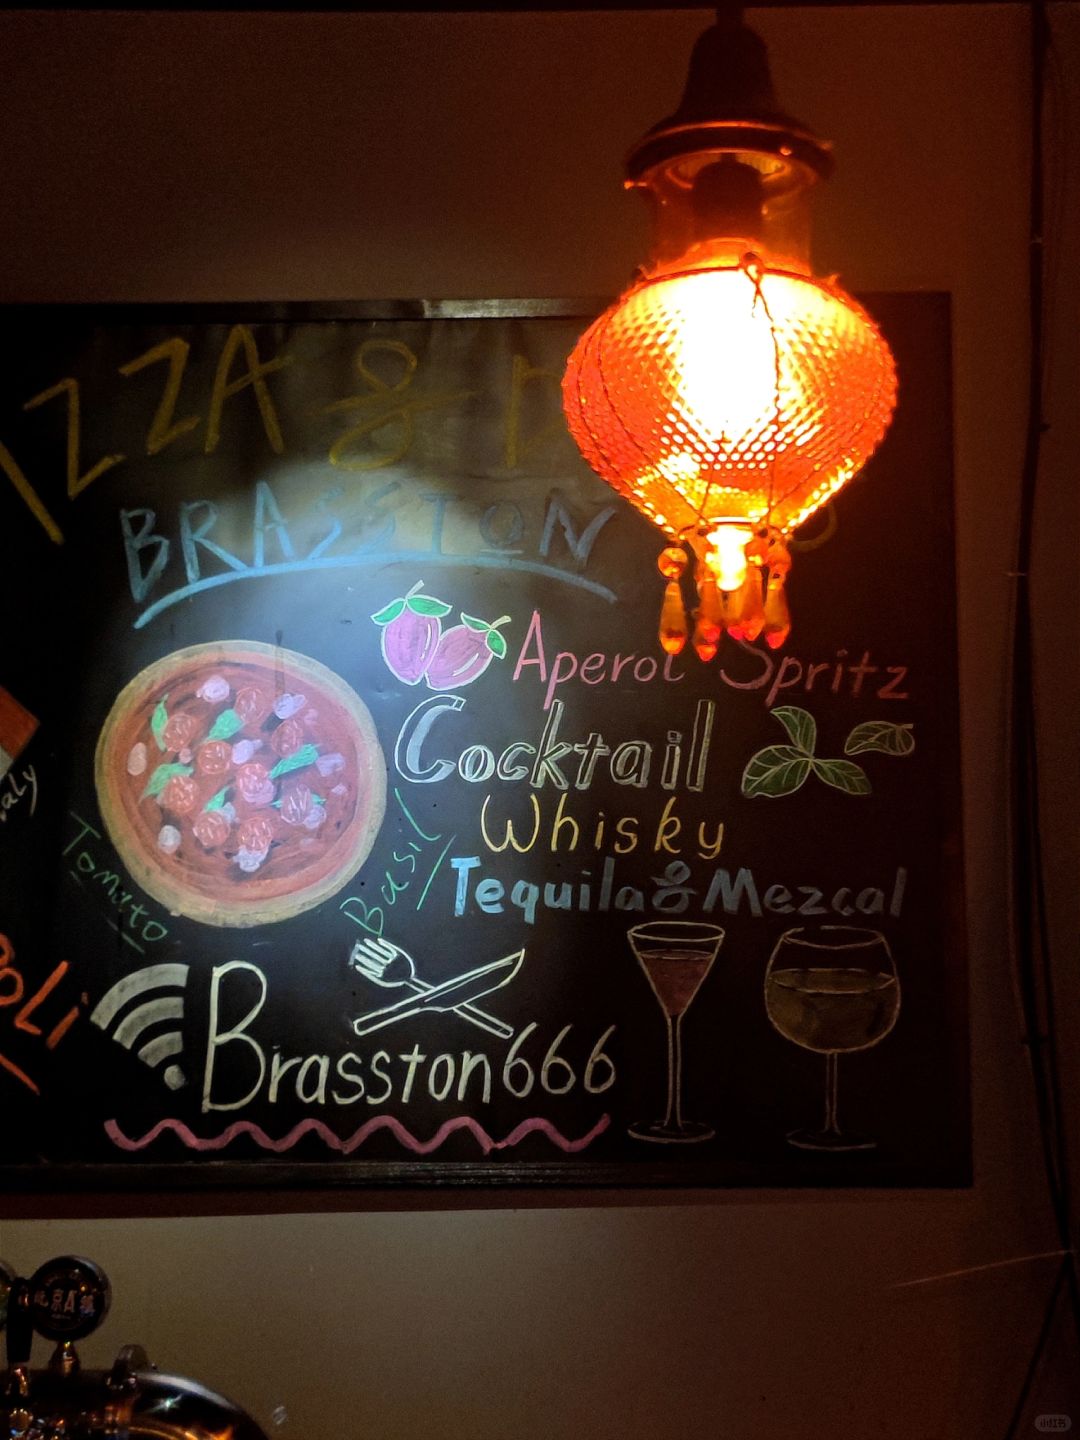 IZZA &
BRASSTON
Aperol Spritz
Cocktail
Whisky
Tequila & Mezcal
aly
Tomato
Basil
OLi
Brasston666
北京A
小红书